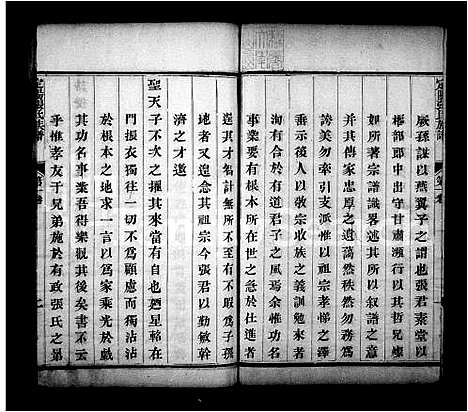 厥孫謀以燕翼子之謂也張君素堂以
樞部郎中出守甘肅瀕行以其哲兄
所著宗譜識畧囑序披譜之意
并其傳家忠厚之遺藹然秩然勿務為
誇美勿牽引支派惟以祖宗孝悌之澤
垂示後人以敬宗收族之義訓勉來者
洵有合於君子之風焉余惟功名
事業要有根本所在世之急於仕進者
逞其才智計無所至有不暇為子孫
地者又遑念其祖宗今張君以勤敏幹
濟之才邀
聖天子不次之擢其來自有也廼星軺在
門振衣獨往一切不為顧慮而獨沾沾
於根本之地必以為家乘光於戲
其功名事業吾得槩觀其後矣書不云
乎惟孝友于兄弟施於有政張氏之景